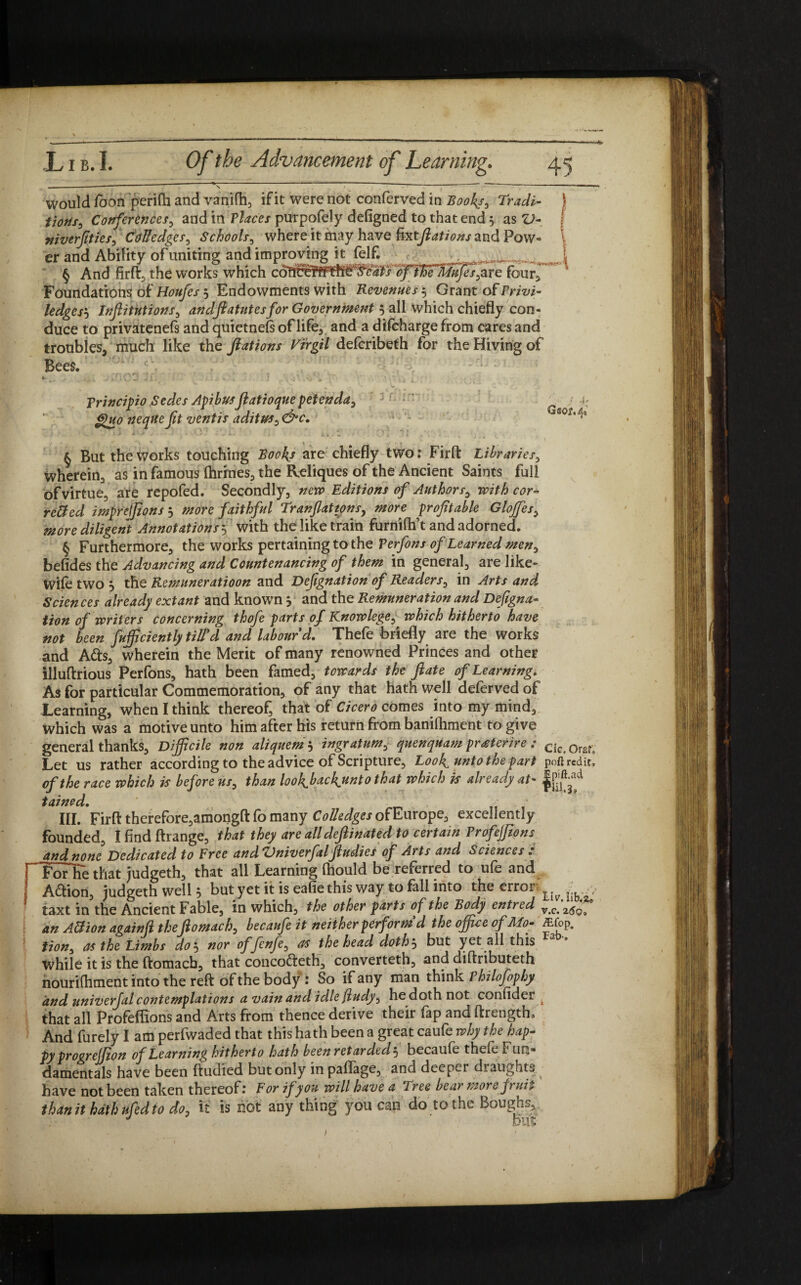 LIB. I. Of the Advancement of Learning. 45
would ſoon periſh and vaniſh, if it were not conſerved in Books, Tradi-
tions, Conferences, and in Places purpoſely deſigned to that end; as V-
niverſities, Colledges, Schools, where it may have fixt ſtations and Pow-
er and Ability of uniting and improving it ſelf.
§ And firſt, the works which concern the Seats of the Muſes, are four,
Foundations of Houſes; Endowments with Revenues; Grant of Privi-
ledges; Inſtitutions, and ſtatutes for Government; all which chiefly con-
duce to privateneſs and quietneſs of life, and a diſcharge from cares and
troubles, much like the ſtations Virgil deſcribeth for the Hiving of
Bees.
Principio Sedes Apibus ſtatioque petenda,
Quo neque ſit ventis aditus, &c.
Geor. 4.
§ But the works touching Books are chiefly two: Firſt Libraries,
wherein, as in famous ſhrines, the Reliques of the Ancient Saints full
of virtue, are repoſed. Secondly, new Editions of Authors, with cor-
rected impreſſions; more faithful Tranſlations, more profitable Gloſſes,
more diligent Annotations; with the like train furniſh't and adorned.
§ Furthermore, the works pertaining to the Perſons of Learned men,
beſides the Advancing and Countenancing of them in general, are like-
wiſe two; the Remuneratioon and Deſignation of Readers, in Arts and
Sciences already extant and known; and the Remuneration and Deſigna-
tion of writers concerning thoſe parts of Knowlege, which hitherto have
not been ſufficiently till'd and labour'd. Theſe briefly are the works
and Acts, wherein the Merit of many renowned Princes and other
illuſtrious Perſons, hath been famed, towards the ſtate of Learning.
As for particular Commemoration, of any that hath well deſerved of
Learning, when I think thereof, that of Cicero comes into my mind,
which was a motive unto him after his return from baniſhment to give
general thanks, Difficile non aliquem; ingratum, quenquam præterire: Cic. Orat.
Let us rather according to the advice of Scripture, Look unto the part poſt redit.
of the race which is before us, than look back unto that which is already at- Epiſt. ad
tained. Phil. 3.
III. Firſt therefore, amongſt ſo many Colledges of Europe, excellently
founded, I find ſtrange, that they are all deſtinated to certain Profeſſions
and none Dedicated to Free and Univerſal ſtudies of Arts and Sciences:
For he that judgeth, that all Learning ſhould be referred to uſe and
Action, judgeth well; but yet it is eaſie this way to fall into the error
taxt in the Ancient Fable, in which, the other parts of the Body entred Liv. lib. 2.
an Action againſt the ſtomach, becauſe it neither perform'd the office of Mo- v.c. 260.
tion, as the Limbs do; nor of ſenſe, as the head doth; but yet all this Æſop.
while it is the ſtomach, that concocteth, converteth, and diſtributeth Fab.
nouriſhment into the reſt of the body: So if any man think Philoſophy
and univerſal contemplations a vain and idle ſtudy, he doth not conſider
that all Profeſſions and Arts from thence derive their ſap and ſtrength.
And ſurely I am perſwaded that this hath been a great cauſe why the hap-
py progreſſion of Learning hitherto hath been retarded; becauſe theſe Fun-
damentals have been ſtudied but only in paſſage, and deeper draughts
have not been taken thereof: For if you will have a Tree bear more fruit
than it hath uſed to do, it is not any thing you can do to the Boughs,
but